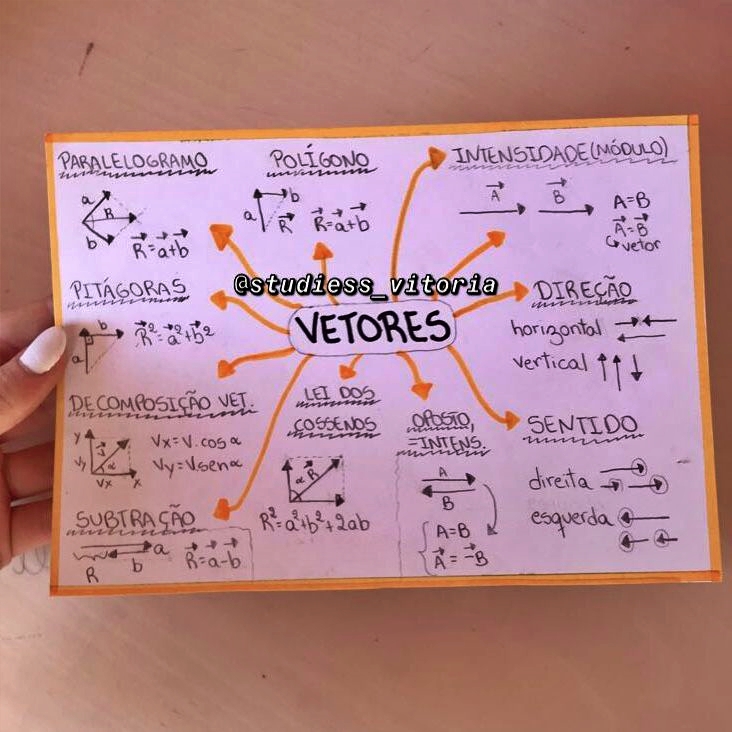 PARALELOGRAMO
a
R
b
R⃗=a⃗+b⃗
POLÍGONO
b
a
R⃗
R⃗=a⃗+b⃗
INTENSIDADE(MÓDULO)
A⃗ B⃗
A=B
A⃗=B⃗
vetor
@studiess_vitoria
VETORES
PITÁGORAS
b
a
R⃗²=a⃗²+b⃗²
DIREÇÃO
horizontal
vertical
DECOMPOSIÇÃO VET.
y
Vy
V⃗
α
Vx
x
Vx=V.cosα
Vy=V.senα
LEI DOS
COSSENOS
α R⃗
R²=a²+b²+2ab
OPOSTO,
=INTENS.
A
B
A=B
A⃗=-B⃗
SENTIDO
direita
esquerda
SUBTRAÇÃO
a
R b
R⃗=a⃗-b⃗